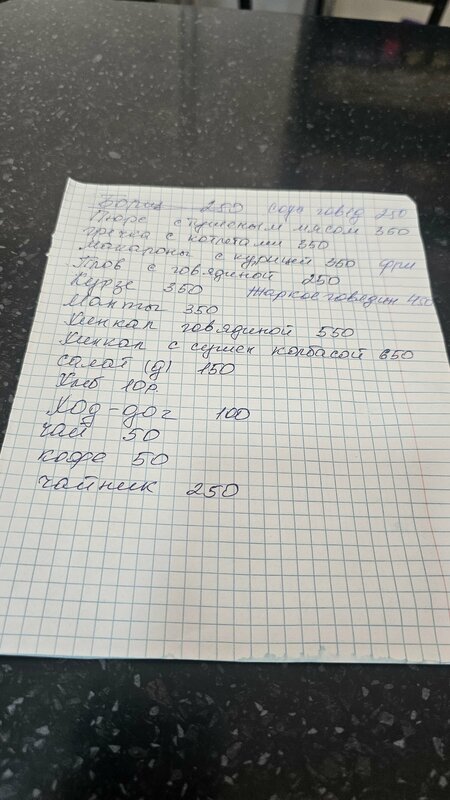 Борщ 250 соус говяд 250
Пюре с тушеным мясом 350
гречка с котлетами 350
Макароны с курицей 350 фри
Плов с говядиной 250
Курзе 350 Жаркое говядин 450
Манты 350
Хинкал говядиной 550
Хинкал с сушен колбасой 650
салат (д) 150
Хлб 10р
Ход-дог 100
чай 50
кофе 50
чайник 250